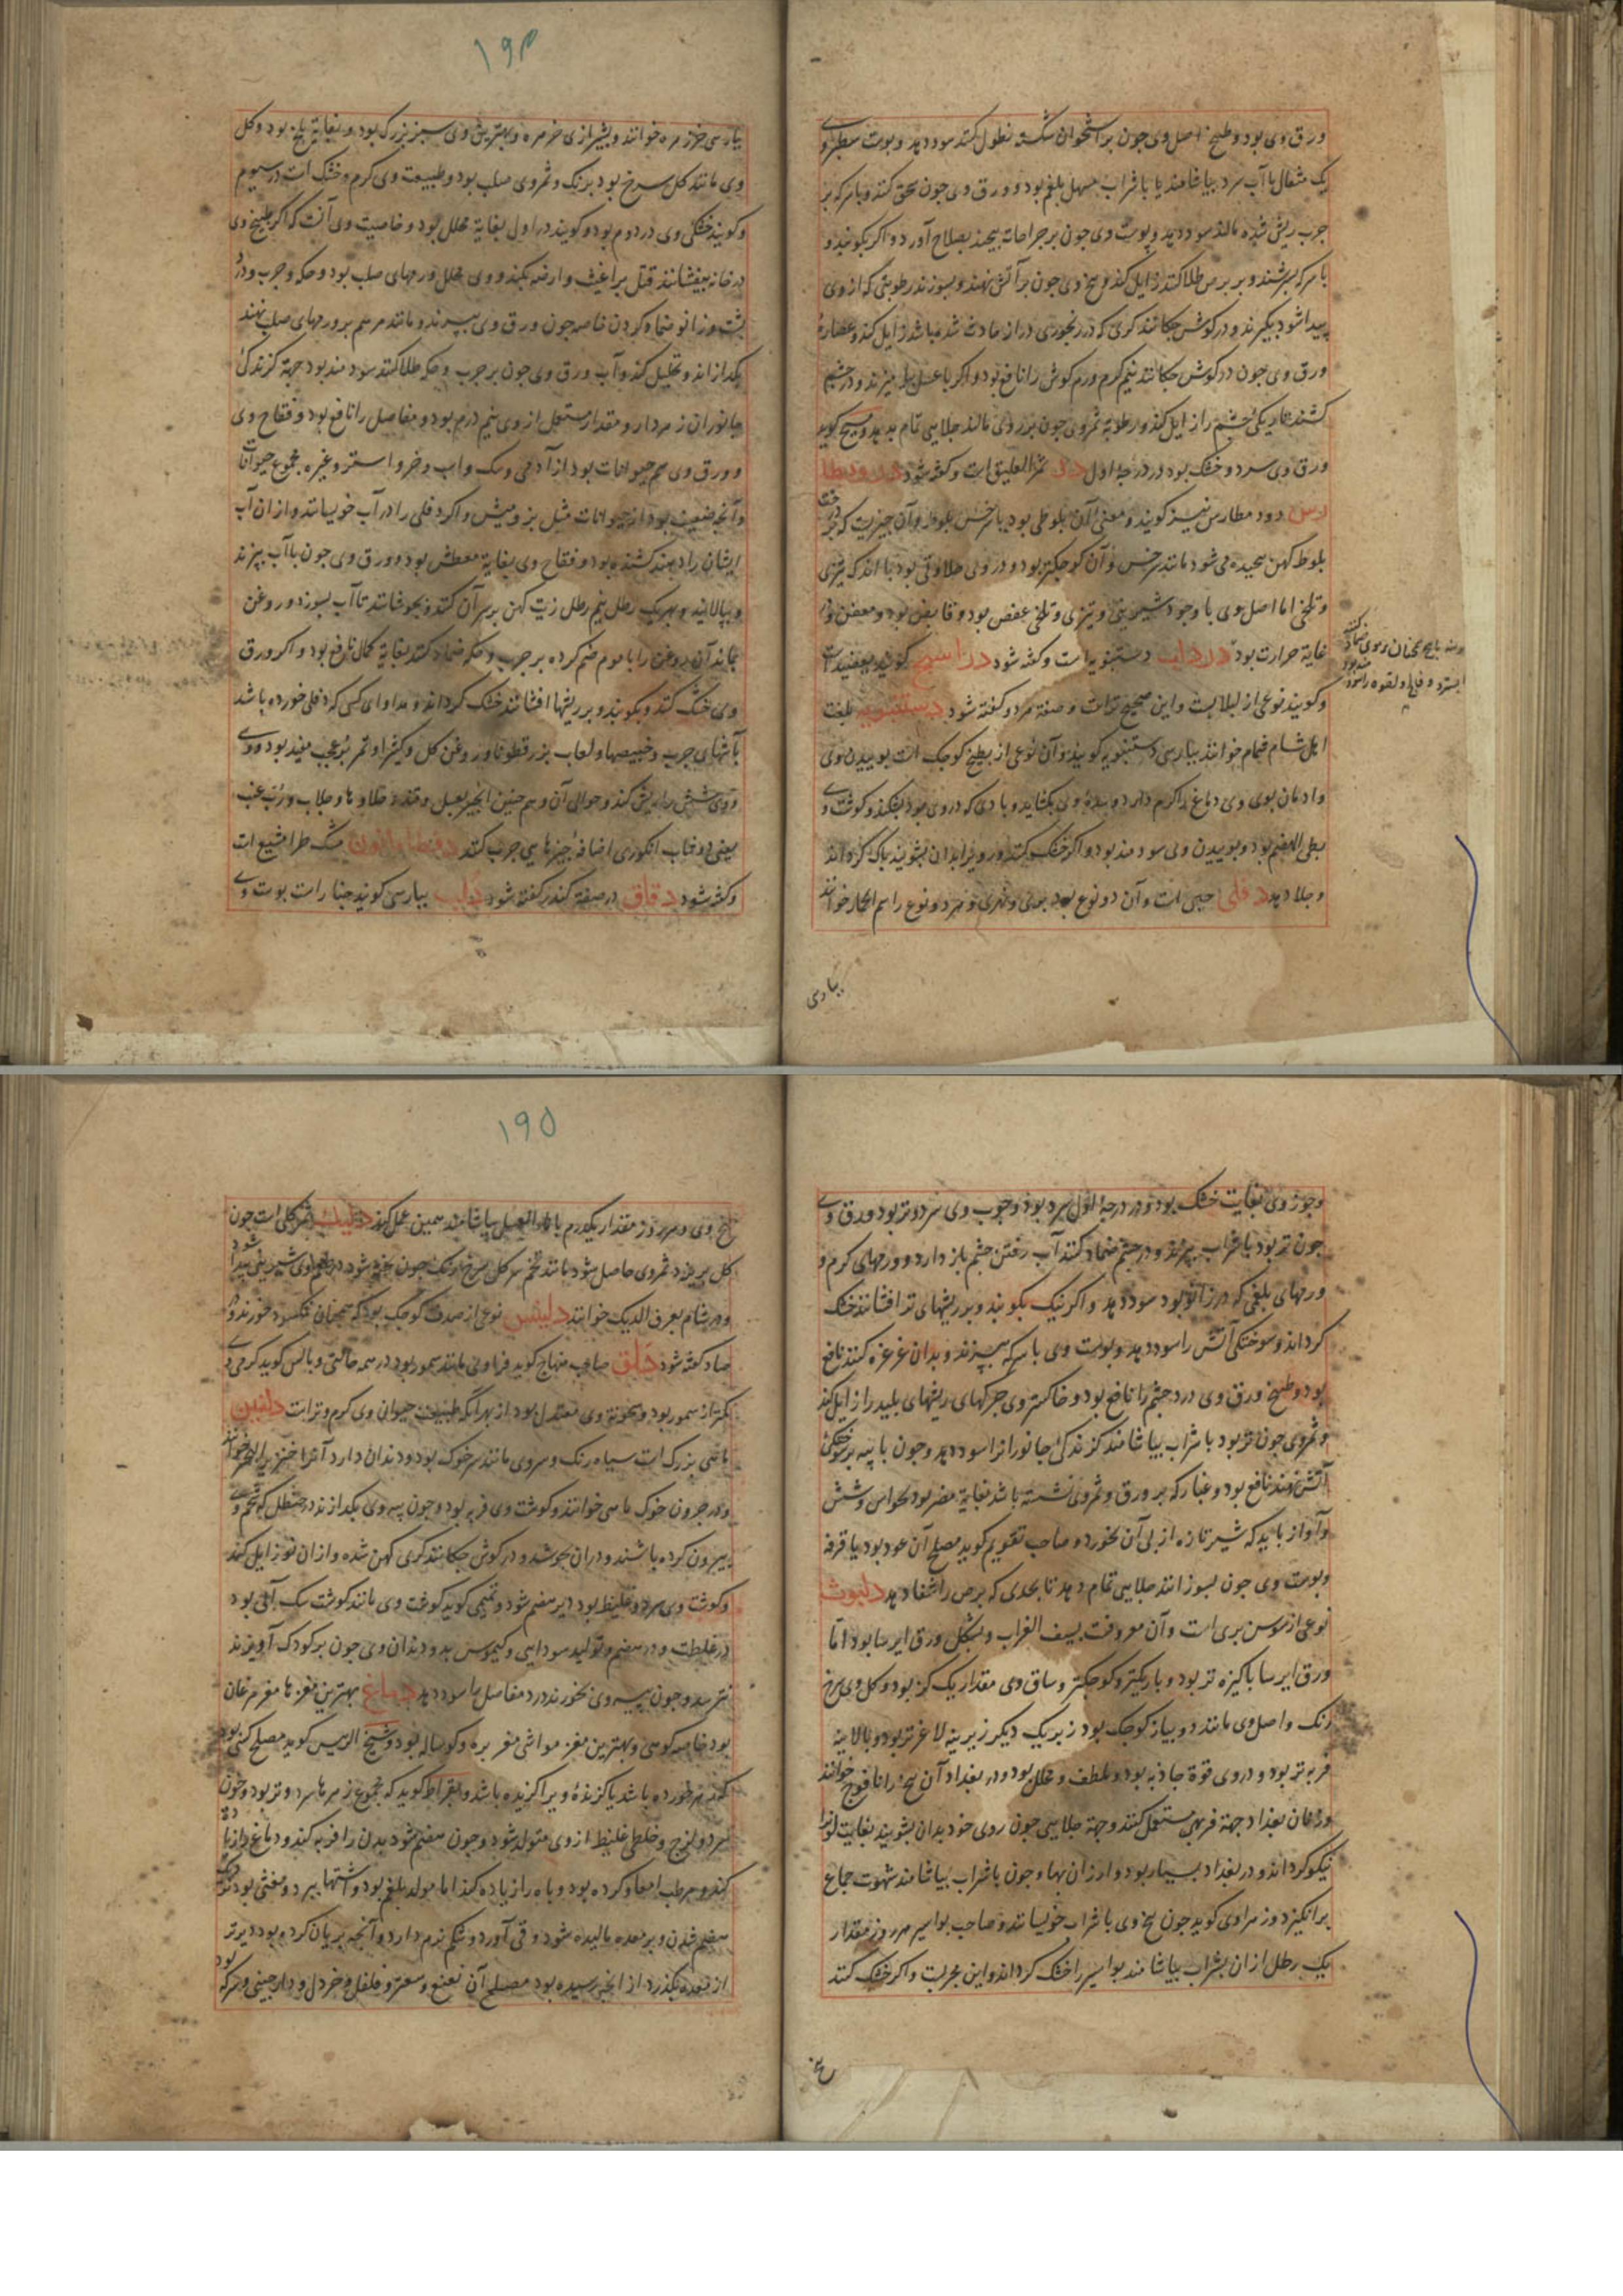 ورق وی بود و طبیخ اصل وی چون بر استخوان شکسته نطول کنند سود دهد و پوست سطبر وی
یک مثقال با آب سرد بیاشامند یا با شراب مسهل بلغم بود و ورق وی چون سحق کنند و با سرکه بر
جرب ریش شده مالند سود دهد و پوست وی چون بر جراحات پیچند بصلاح آورد و اگر بکوبند و
با سرکه بسرشند و بر برص طلا کنند زایل کند و بیخ وی چون بر آتش نهند و بسوزند رطوبتی که از وی
پیدا شود بگیرند و در گوش چکانند کری که در رنجوری دراز حادث شده باشد زایل کند و عصارهٔ
ورق وی چون در گوش چکانند نیم گرم ورم گوش را نافع بود و اگر با عسل بیامیزند و در چشم
کشند تاریکی چشم را زایل کند و رطوبة ثمر وی چون بر روی مالند جلایی تمام بدهد و مسیح گوید
ورق وی سرد و خشک بود در درجهٔ اول در ثمر العلیق است و گفته شود دروبطا
رس و دود مطارس نیز گویند و معنی آن بلوطی بود یا سرخس بلوط و آن چیزیست که بر درخت
بلوط کهن پیچیده می شود مانند سرخس و آن کوچکتر بود و در وی حلاوتی بود با اندک تیزی
و تلخی اما اصل وی با وجود شیرینی و تیزی و تلخی عفص بود و قابض بود و معفن و در
غایة حرارت بود درداب دستنبویه است و گفته شود دراسج گویند بعفنید است
و گویند نوعی از لبلابست و این صحیح تر است و صفة هر دو گفته شود دستنبویه بلغت
اهل شام شمام خوانند بپارسی دستنبویه گویند و آن نوعی از بطیخ کوچک است بوییدن وی
و ادمان بوی وی دماغ را گرم دارد و سدهٔ وی بگشاید و بادی که در وی بود بشکند و گوشت وی
بطی الهضم بود و بوییدن وی سودمند بود و اگر خشک کنند و رو و بر ابدان بشویند پاک گرداند
و جلا دهد دفلی حبی است و آن دو نوع بود بری و نهری و هر دو نوع را سم الحمار خوانند
بپارسی
۱۹۴
بپارسی خرزهره خوانند و بشیرازی خرهره و بهترین وی سبز بزرگ بود و بغایة تلخ بود و گل
وی مانند گل سرخ بود برنگ و ثمر وی صلب بود و طبیعت وی گرم و خشک است در سیوم
و گویند خشکی وی در دوم بود و گویند در اول بغایة محلل بود و خاصیت وی آنست که اگر طبیخ وی
در خانه بیفشانند قتل براغیث و ارضه بکند و وی محلل ورمهای صلب بود و حکه و جرب و درد
پشت و زانو ضماد کردن خاصه چون ورق وی بپزند و مانند مرهم بر ورمهای صلب نهند
بگدازاند و تحلیل کند و آب ورق وی چون بر جرب و حکه طلا کنند سودمند بود جهة گزندگی
جانوران زهردار و مقدار مستعمل از وی نیم درم بود و مفاصل را نافع بود و فقاح وی
و ورق وی سم حیوانات بود از آدمی و سگ و اسب و خر و استر و غیره مجموع حیوانات
و آنچه ضعیف بود از حیوانات مثل بز و میش و اگر دفلی را در آب خویسانند و از ان آب
ایشان را دهند کشنده بود و فقاح وی بغایة معطش بود و ورق وی چون با آب بپزند
و بپالایند و بهر یک رطل نیم رطل زیت کهن بر سر آن کنند و بجوشانند تا آب بسوزد و روغن
بماند آن روغن را با موم ضم کرده بر جرب و حکه ضماد کنند بغایة کمال نافع بود و اگر ورق
وی خشک کنند و بکوبند و بر ریشها افشانند خشک گرداند و مداوای کسی که دفلی خورده باشد
بآشهای چرب و خبیصها و لعاب بزرقطونا و روغن گل و کثیرا و تمر بو عجب مفید بود و وی
و وی شش را ریش کند و حوالی آن و هم چنین انجیر بعسل و قند و حلاوها و جلاب و ربّ عنب
یعنی دوشاب انگوری اضافهٔ چیزهایی چرب کنند دقطاماانون مشک طرامشیع است
و گفته شود دقاق در صفة کندر گفته شود دلب بپارسی گویند چنار است پوست وی
وجوز وی بغایت خشک بود و در درجهٔ اول سرد بود و چوب وی سرد و تر بود و ورق وی
چون تر بود با شراب بپزند و در چشم ضماد کنند آب رفتن چشم باز دارد و ورمهای گرم و
ورمهای بلغمی که در زانو بود سود دهد و اگر نیک بکوبند و بر ریشهای تر افشانند خشک
گرداند و سوختگی آتش را سود دهد و پوست وی با سرکه بپزند و بدان غرغره کنند نافع
بود و طبیخ ورق وی درد چشم را نافع بود و خاکستر وی چرکهای ریشهای پلید را زایل کند
و ثمر وی چون تر بود با شراب بیاشامند گزندگی جانوران را سود دهد و چون با پیه بر سوختگی
آتش نهند نافع بود و غبار که بر ورق و ثمر وی نشسته باشد بغایة مضر بود بحواس و شش
و آواز باید که شیر تازه از پی آن بخورد و صاحب تقویم گوید مصلح آن عود بود یا قرفه
و پوست وی چون بسوزانند جلایی تمام دهد تا بحدی که برص را شفا دهد دلبوث
نوعی از سوسن بری است و آن معروفست بسیف الغراب و بشکل ورق ایرسا بود اما
ورق ایرسا پاکیزه تر بود و باریکتر و کوچکتر و ساق وی مقدار یک گز بود و گل وی سرخ
رنگ و اصل وی مانند دو پیاز کوچک بود زبر یک دیگر زیرینه لاغرتر بود و بالاینه
فربه تر بود و در وی قوة جاذبه بود و ملطف و محلل بود و در بغداد آن بیخ را نافوخ خوانند
و زنان بغداد جهة فربهی مستعمل کنند و جهة جلایی چون روی خود بدان بشویند بغایت لون را
نیکو گرداند و در بغداد بسیار بود و ارزان بها و چون با شراب بیاشامند شهوت جماع
برانگیزد و زهراوی گوید چون بیخ وی با شراب خویسانند و صاحب بواسیر هر روز مقدار
یک رطل از ان بشراب بیاشامند بواسیر را خشک گرداند و این مجربست و اگر خشک کنند
بیخ
۱۹۵
بیخ وی و هر روز مقدار یکدرم با ماء العسل بیاشامند همین عمل کند دلیک ثمر گلی است چون
گل بریزد ثمر وی حاصل شود مانند تخم سر گل سرخ رنگ چون پخته شود در طعم وی شیرینی پیدا شود
و در شام بعرف الدیک خوانند دلینس نوعی از صدف کوچک بود که همچنان نمکسود خورند و در
صاد گفته شود دلق صاحب منهاج گوید فرا وی مانند سمور بود در همه حالتی و بالس گوید گرمی وی
کمتر از سمور بود و سخونة وی معتدل بود از بهر آنکه طبیعت حیوان وی گرم و تر است دلفین
ماهی بزرگ است سیاه رنگ و سر وی مانند سر خوک بود و دندان دارد آنرا خنزیر البحر خوانند
و در جرون خوک ماهی خوانند و گوشت وی فربه بود و چون پیه وی بگدازند در حنظل که شحم وی
بیرون کرده باشند و در ان بجوشد و در گوش چکانند کری کهن شده و از ان نو زایل کند
و گوشت وی سرد و غلیظ بود دیر هضم شود و تمیمی گوید گوشت وی مانند گوشت سگ آبی بود
در غلظت و در هضم و تولید سودایی و کیموس بد و دندان وی چون بر کودک آویزند
نترسد و چون پیه وی بخورند درد مفاصل را سود دهد دماغ بهترین مغزها مغز مرغان
بود خاصه کوهی و بهترین مغز مواشی مغز بره و گوساله بود و شیخ الرئیس گوید مصلح کسی بود
که زهر خورده باشد یا گزندهٔ ویرا گزیده باشد و بقراط گوید که مجموع زهرها سرد و تر بود و خون
سرد و لزج و خلطی غلیظ از وی متولد شود و چون هضم شود بدن را فربه کند و دماغ را زیاده
کند و مرطب امعا و گرده بود و باه را زیاده کند اما مولد بلغم بود و اشتها ببرد و مغثی بود
هضم شدن و بر معده مالیده شود و قی آورد و شکم نرم دارد و آنچه بریان کرده بود دیرتر
از معده بگذرد از انجیر رسیده بود مصلح آن نعنع و سعتر و فلفل و خردل و دارچینی و سرکه بود